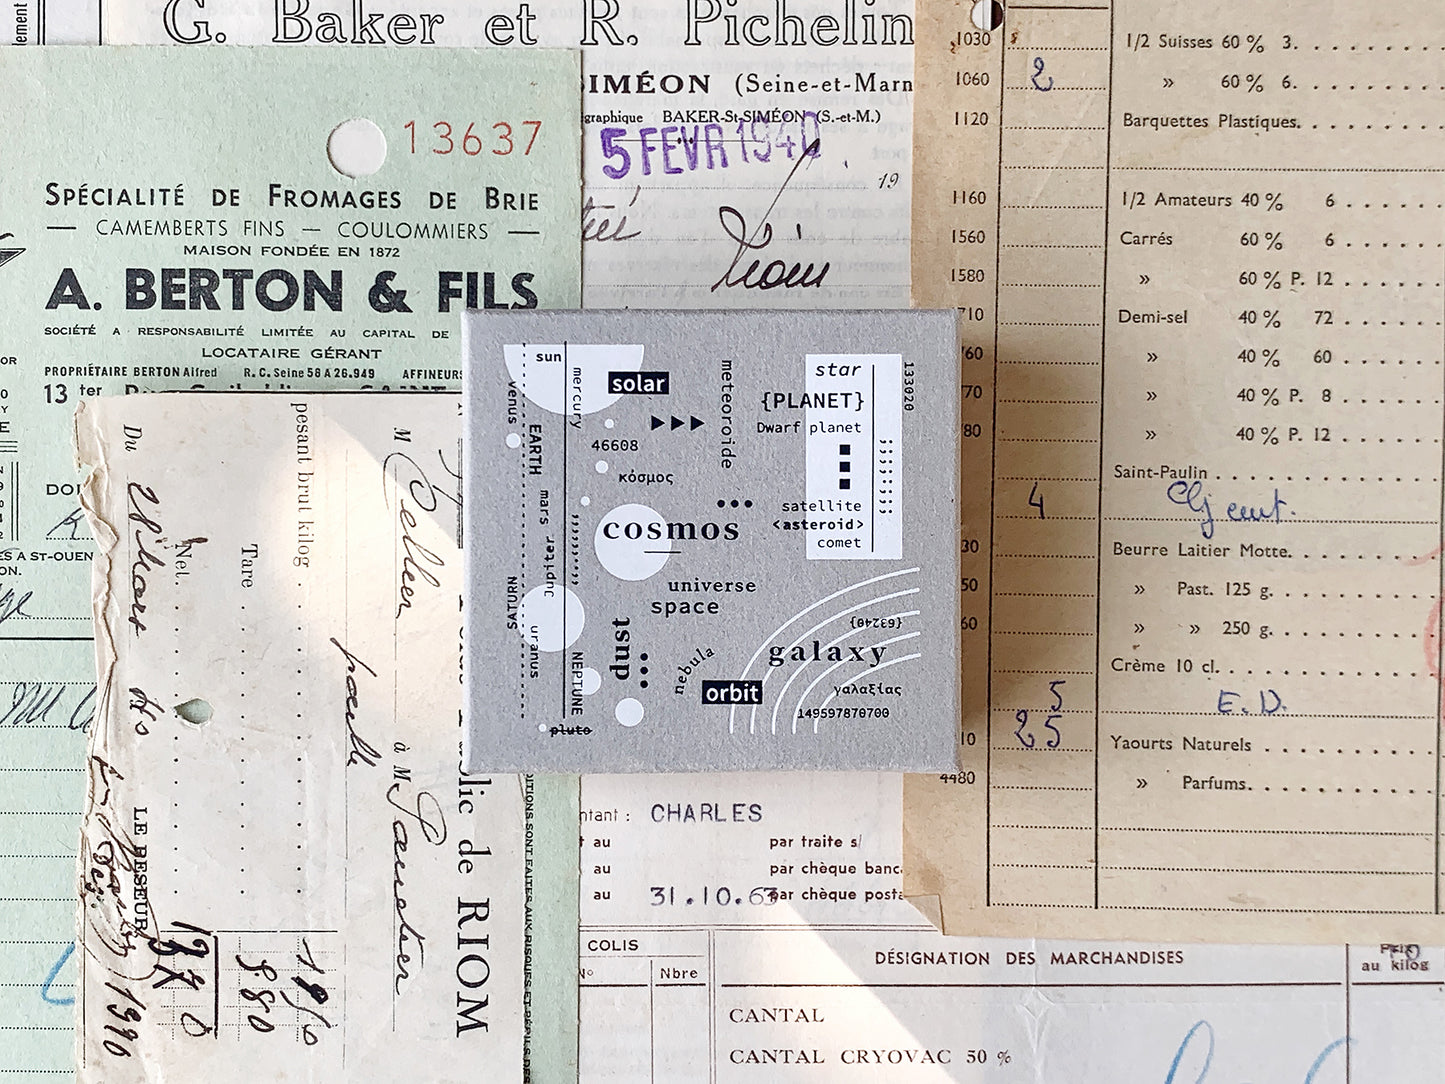 G. Baker et R. Pichelin
SIMÉON (Seine-et-Marn
graphique BAKER-St-SIMÉON (S.-et-M.)
5 FEVR 1940
19
13637
SPÉCIALITÉ DE FROMAGES DE BRIE
— CAMEMBERTS FINS — COULOMMIERS —
MAISON FONDÉE EN 1872
A. BERTON & FILS
SOCIÉTÉ A RESPONSABILITÉ LIMITÉE AU CAPITAL DE
LOCATAIRE GÉRANT
PROPRIÉTAIRE BERTON Alfred R. C. Seine 58 A 26.949 AFFINEURS
13 ter
A ST-OUEN
Du
pesant brut kilog.
Tare
Net.
M
à M
LE PESEUR
1390
lic de RIOM
sun
mercury
venus
EARTH
mars
jupiter
SATURN
uranus
NEPTUNE
pluto
solar
▶▶▶
46608
κόσμος
meteoroide
cosmos
universe
space
dust
nebula
orbit
galaxy
{63240}
γαλαξίας
149597870700
star
{PLANET}
Dwarf planet
satellite
<asteroid>
comet
133020
1030 1/2 Suisses 60 % 3.
1060 2 » 60 % 6.
1120 Barquettes Plastiques.
1160 1/2 Amateurs 40 % 6
1560 Carrés 60 % 6
1580 » 60 % P. 12
710 Demi-sel 40 % 72
760 » 40 % 60
70 » 40 % P. 8
80 » 40 % P. 12
Saint-Paulin
4
30 Beurre Laitier Motte.
50 » Past. 125 g.
60 » » 250 g.
Crème 10 cl.
5 E. D.
10 25 Yaourts Naturels
4480 » Parfums.
ntant : CHARLES
au par traite s/
au par chèque banc
au 31.10.63 par chèque posta
COLIS
N° Nbre
DÉSIGNATION DES MARCHANDISES
Prix
au kilog
CANTAL
CANTAL CRYOVAC 50 %